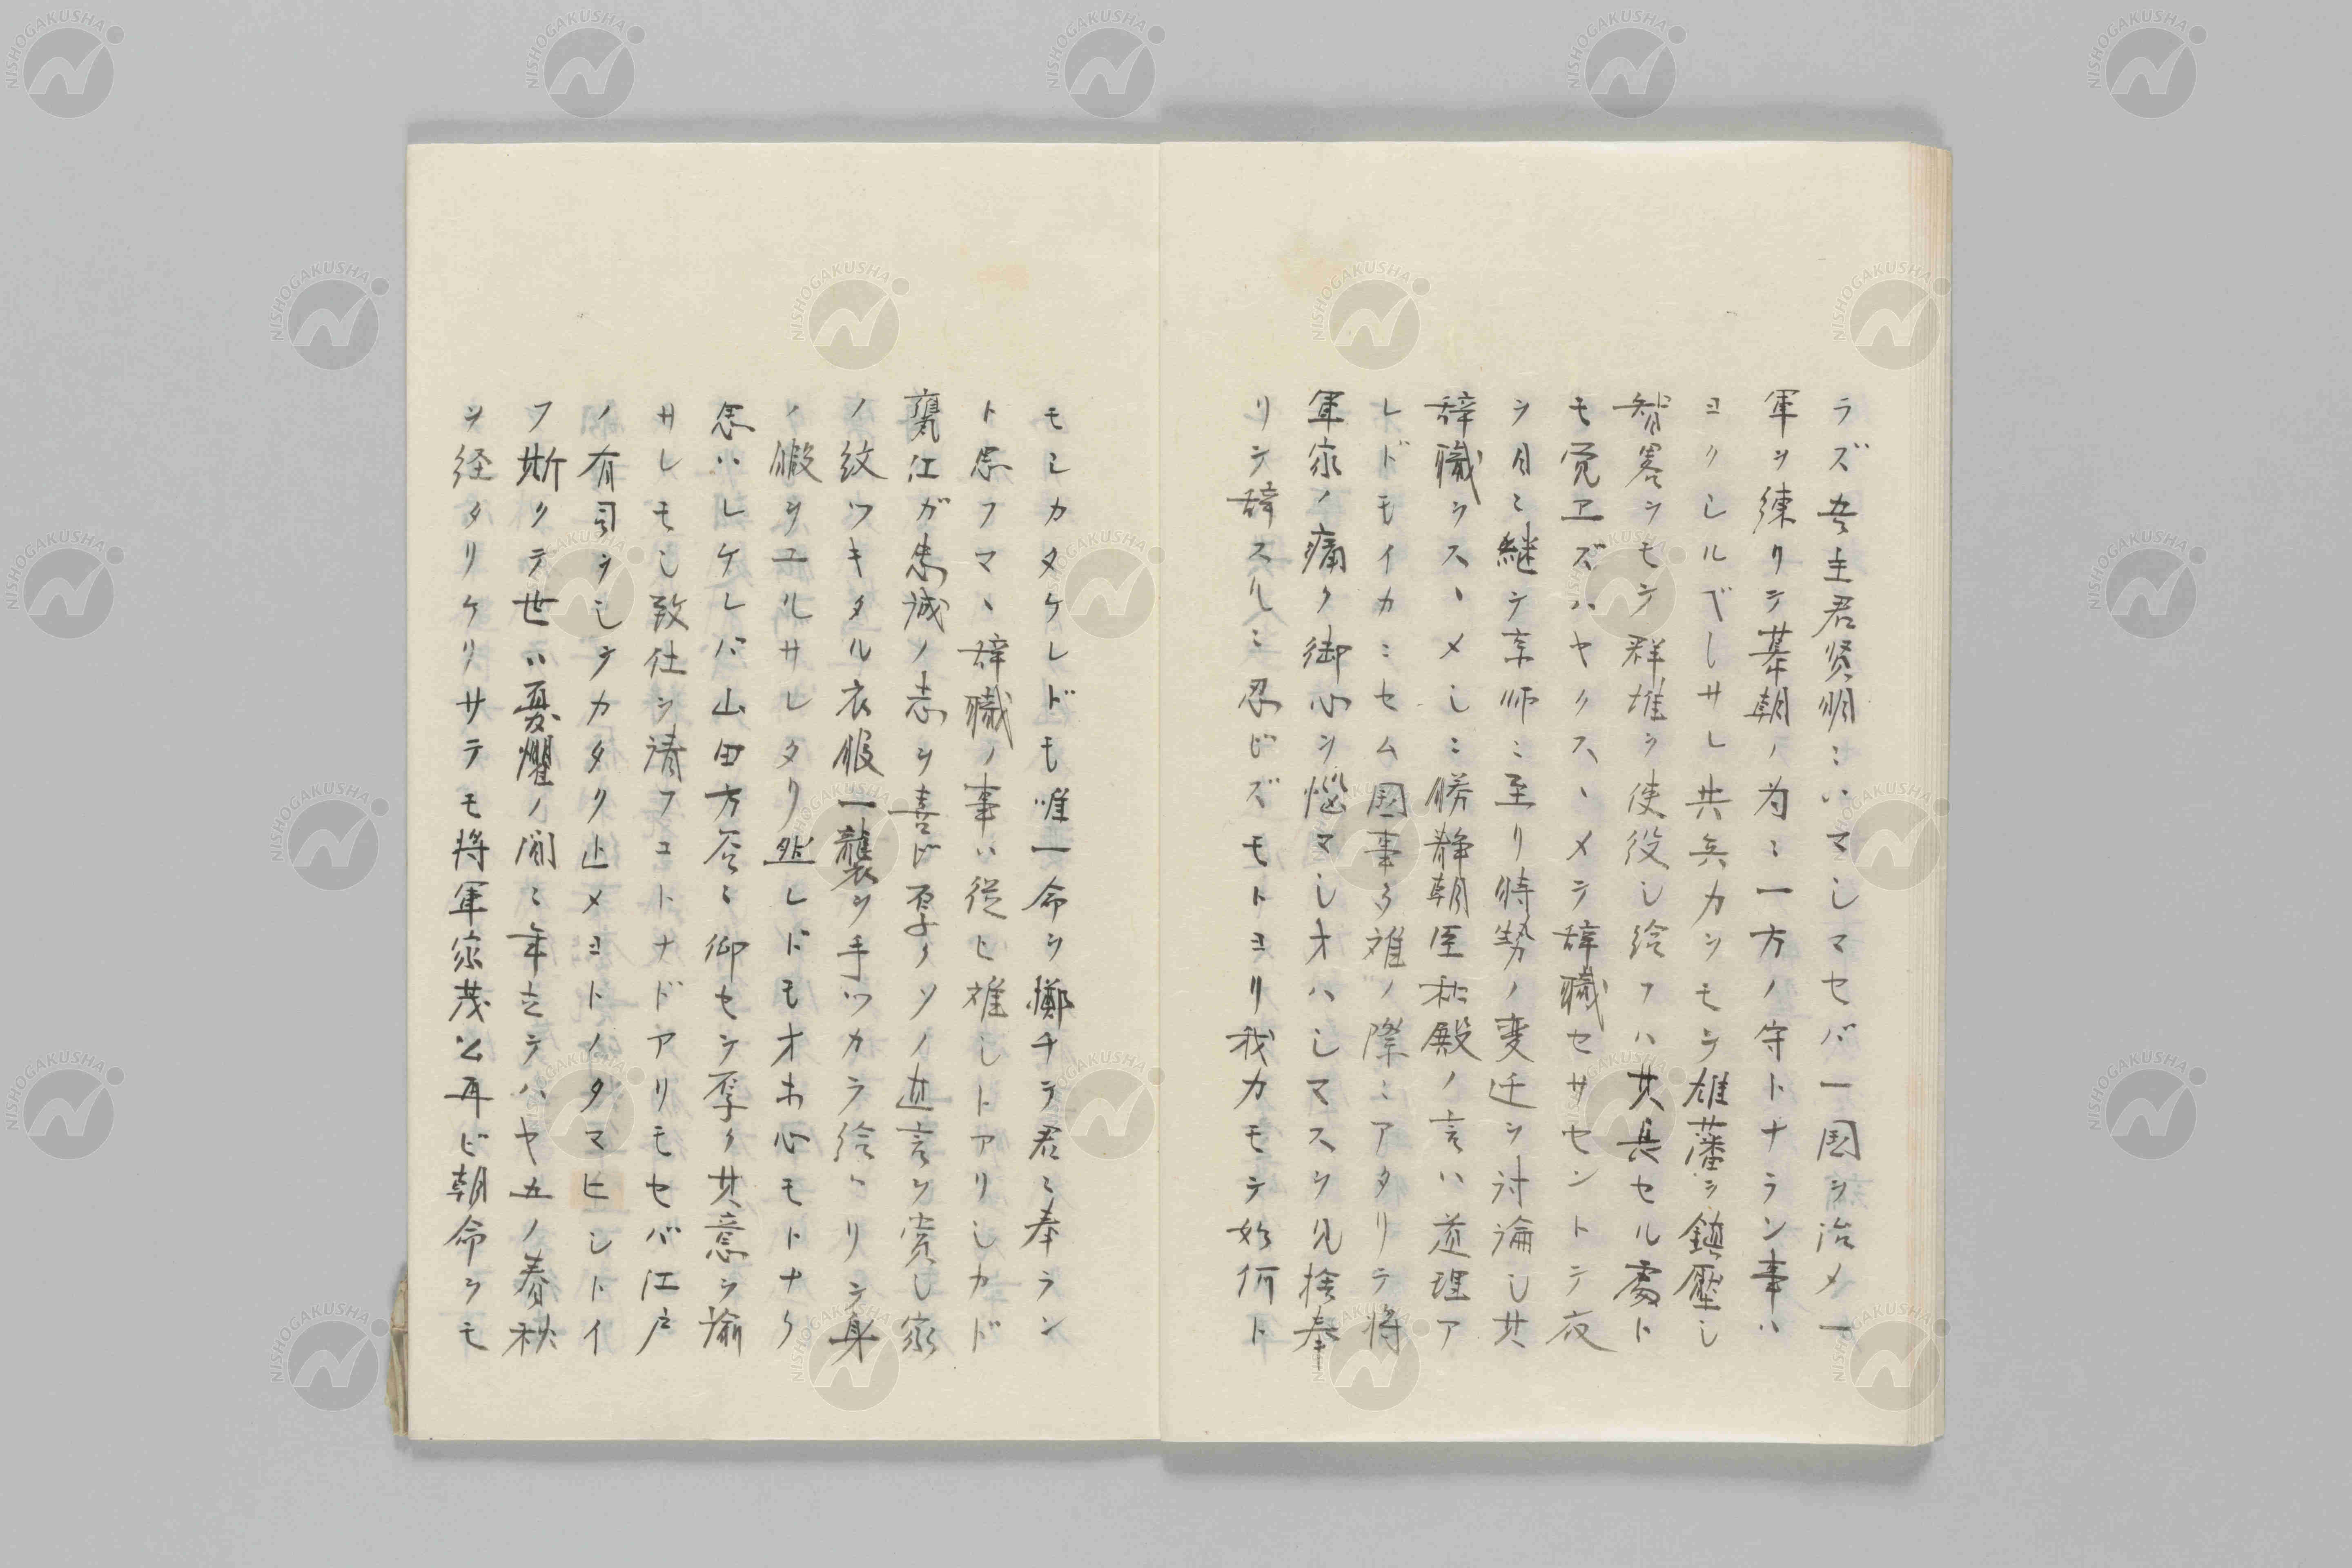 ラズ吾主君賢明ニハマシマセバ一国ヲ治メ一
軍ヲ練リテ幕朝ノ為ニ一方ノ守トナラン事ハ
ヨクシルベシサレ共兵力ヲモテ雄藩ヲ鎮壓シ
智畧ヲモテ群雄ヲ使役シ給フハ其具セル處ト
モ覚ヱズハヤクスヽメテ辞職セサセントテ夜
ヲ日ニ継テ京師ニ至リ時勢ノ変迁ヲ討論シ其
辞職ヲスヽメシニ勝静朝臣松殿ノ言ハ道理ア
レドモイカニセム国事多難ノ際ニアタリテ将
軍家ノ痛ク御心ヲ悩マシオハシマスヲ見捨奉
リテ辞スルニ忍ビズモトヨリ我カモテ如何ト
モシカタケレドモ唯一命ヲ擲チテ君ニ奉ラン
ト思フマヽ辞職ノ事ハ従ヒ難シトアリシカド
甕江ガ忠誠ノ志ヲ喜ビ厚クソノ直言ヲ賞シ家
ノ紋ツキタル衣服一襲ヲ手ツカラ給ヘリテ身
ノ暇ヲユルサレタリ然レドモ才ホ心モトナク
思ハレケレバ山田方谷ニ御セテ厚ク其意ヲ諭
サレモシ致仕ヲ請フコトナドアリモセバ江戸
ノ有司ヲシテカタク止メヨトノタマヒシトイ
フ斯クテ世ハ憂懼ノ間ニ年立テハヤ五ノ春秋
ヲ経タリケリサテモ将軍家茂公再ビ朝命ヲモ
NISHOGAKUSHA